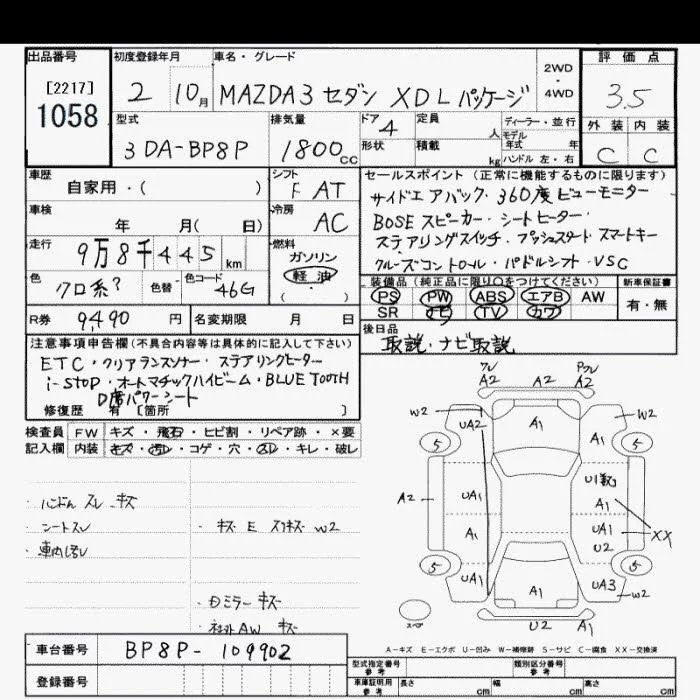 出品番号 初度登録年月 車名・グレード 評価点
[2217]
1058
2 10月 MAZDA3 セダン XDLパッケージ 2WD・4WD 3.5
型式 排気量 ドア 4 定員 人 ディーラー・並行 外装 内装
3DA-BP8P 1800cc 形状 積載 kg モデル年式 年 ハンドル 左・右 C C
車歴 シフト セールスポイント(正常に機能するものに限ります)
自家用・( ) F AT サイドエアバック・360度ビューモニター
車検 冷房 BOSEスピーカー・シートヒーター・
年 月( 日) AC ステアリングスイッチ・プッシュスタート・スマートキー
走行 燃料 クルーズコントロール・パドルシフト・VSC
9万8千445km ガソリン 軽油 ( ・ )
装備品(純正品に限り○をつけてください) 新車保証書
色 クロ系? 色替 色コード 46G PS PW ABS エアB AW 有・無
SR ナビ TV カワ
R券 9,490円 名変期限 月 日 後日品
取説・ナビ取説
注意事項申告欄(不具合内容等は具体的に記入して下さい)
ETC・クリアランスソナー・ステアリングヒーター
i-stop・オートマチックハイビーム・BLUETOOTH
D席パワーシート
修復歴 有 [箇所 ]
検査員 FW キズ・飛石・ヒビ割・リペア跡・×要
記入欄 内装 キズ・汚レ・コゲ・穴・スレ・キレ・破レ
・ハンドル スレ キズ
・シートスレ
・車内汚レ
・キズ E スリキズ W2
・Dミラー キズ
AW キズ
クレ A2 A2 A2
W2 UA2 A1 A1 W2
5 5
A2 UA1 A1 U1 A1
A1 UA1 U2 XX
5 5
UA1 A1 UA3 W2
スペア U2 A1
A-キズ E-エクボ U-凹み W-補修跡 S-サビ C-腐食 XX-交換済
車台番号 BP8P-109902
登録番号
型式指定番号 参考 類別区分番号 参考
車庫証明用 参考 長さ cm 幅 cm 高さ cm